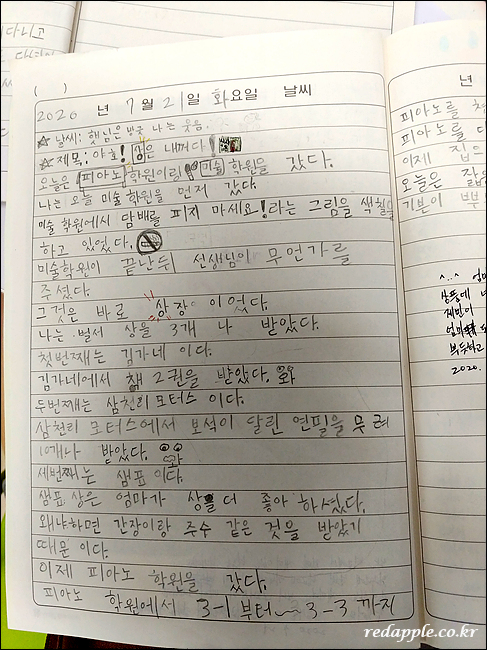 다니고
( )
2020 년 7월 21일 화요일 날씨
☆ 날씨: 햇님은 방긋 나는 웃음.
☆ 제목: 야호! 상은 내꺼다!
오늘은 피아노 학원이랑 미술 학원을 갔다.
나는 오늘 미술 학원을 먼저 갔다.
미술 학원에서 담배를 피지 마세요!라는 그림을 색칠을
하고 있었다.
미술학원이 끝난뒤 선생님이 무언가를
주셨다.
그것은 바로 상장 이었다.
나는 벌써 상을 3개 나 받았다.
첫번째는 김가네 이다.
김가네에서 책 2권을 받았다. 와
두번째는 삼천리 모터스 이다.
삼천리 모터스에서 보석이 달린 연필을 무려
10개나 받았다. 와
세번째는 샘표 이다.
샘표 상은 엄마가 상을 더 좋아 하셨다.
왜냐하면 간장이랑 주수 같은 것을 받았기
때문 이다.
이제 피아노 학원을 갔다.
피아노 학원에서 3-1 부터~~3-3 까지
년
피아노를
피아노를 다
이제 집으
오늘은
기분이
^..^ 엄마
상품에
재민이
엄마
부듯하고
2020.
redapple.co.kr